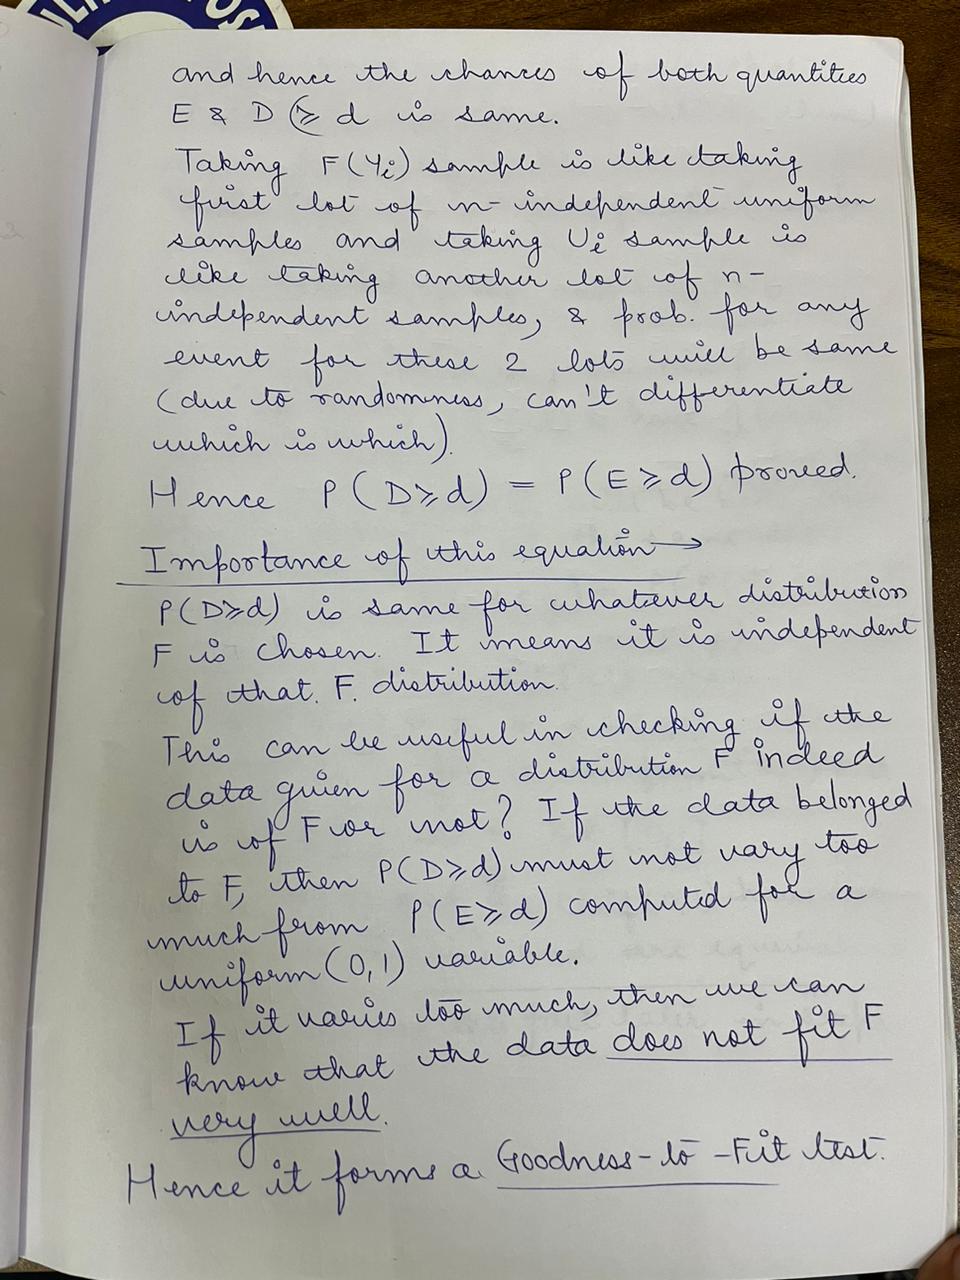 and hence the chances of both quantities
E & D ≥ d is same.
Taking F(Yi) sample is like taking
first lot of n- independent uniform
samples and taking Ui sample is
like taking another lot of n-
independent samples, & prob. for any
event for these 2 lots will be same
(due to randomness, can't differentiate
which is which).
Hence P(D≥d) = P(E≥d) proved.
Importance of this equation →
P(D≥d) is same for whatever distribution
F is chosen. It means it is independent
of that F. distribution.
This can be useful in checking if the
data given for a distribution F indeed
is of F or not? If the data belonged
to F, then P(D≥d) must not vary too
much from P(E≥d) computed for a
uniform (0,1) variable.
If it varies too much, then we can
know that the data does not fit F
very well.
Hence it forms a Goodness-to-Fit test.